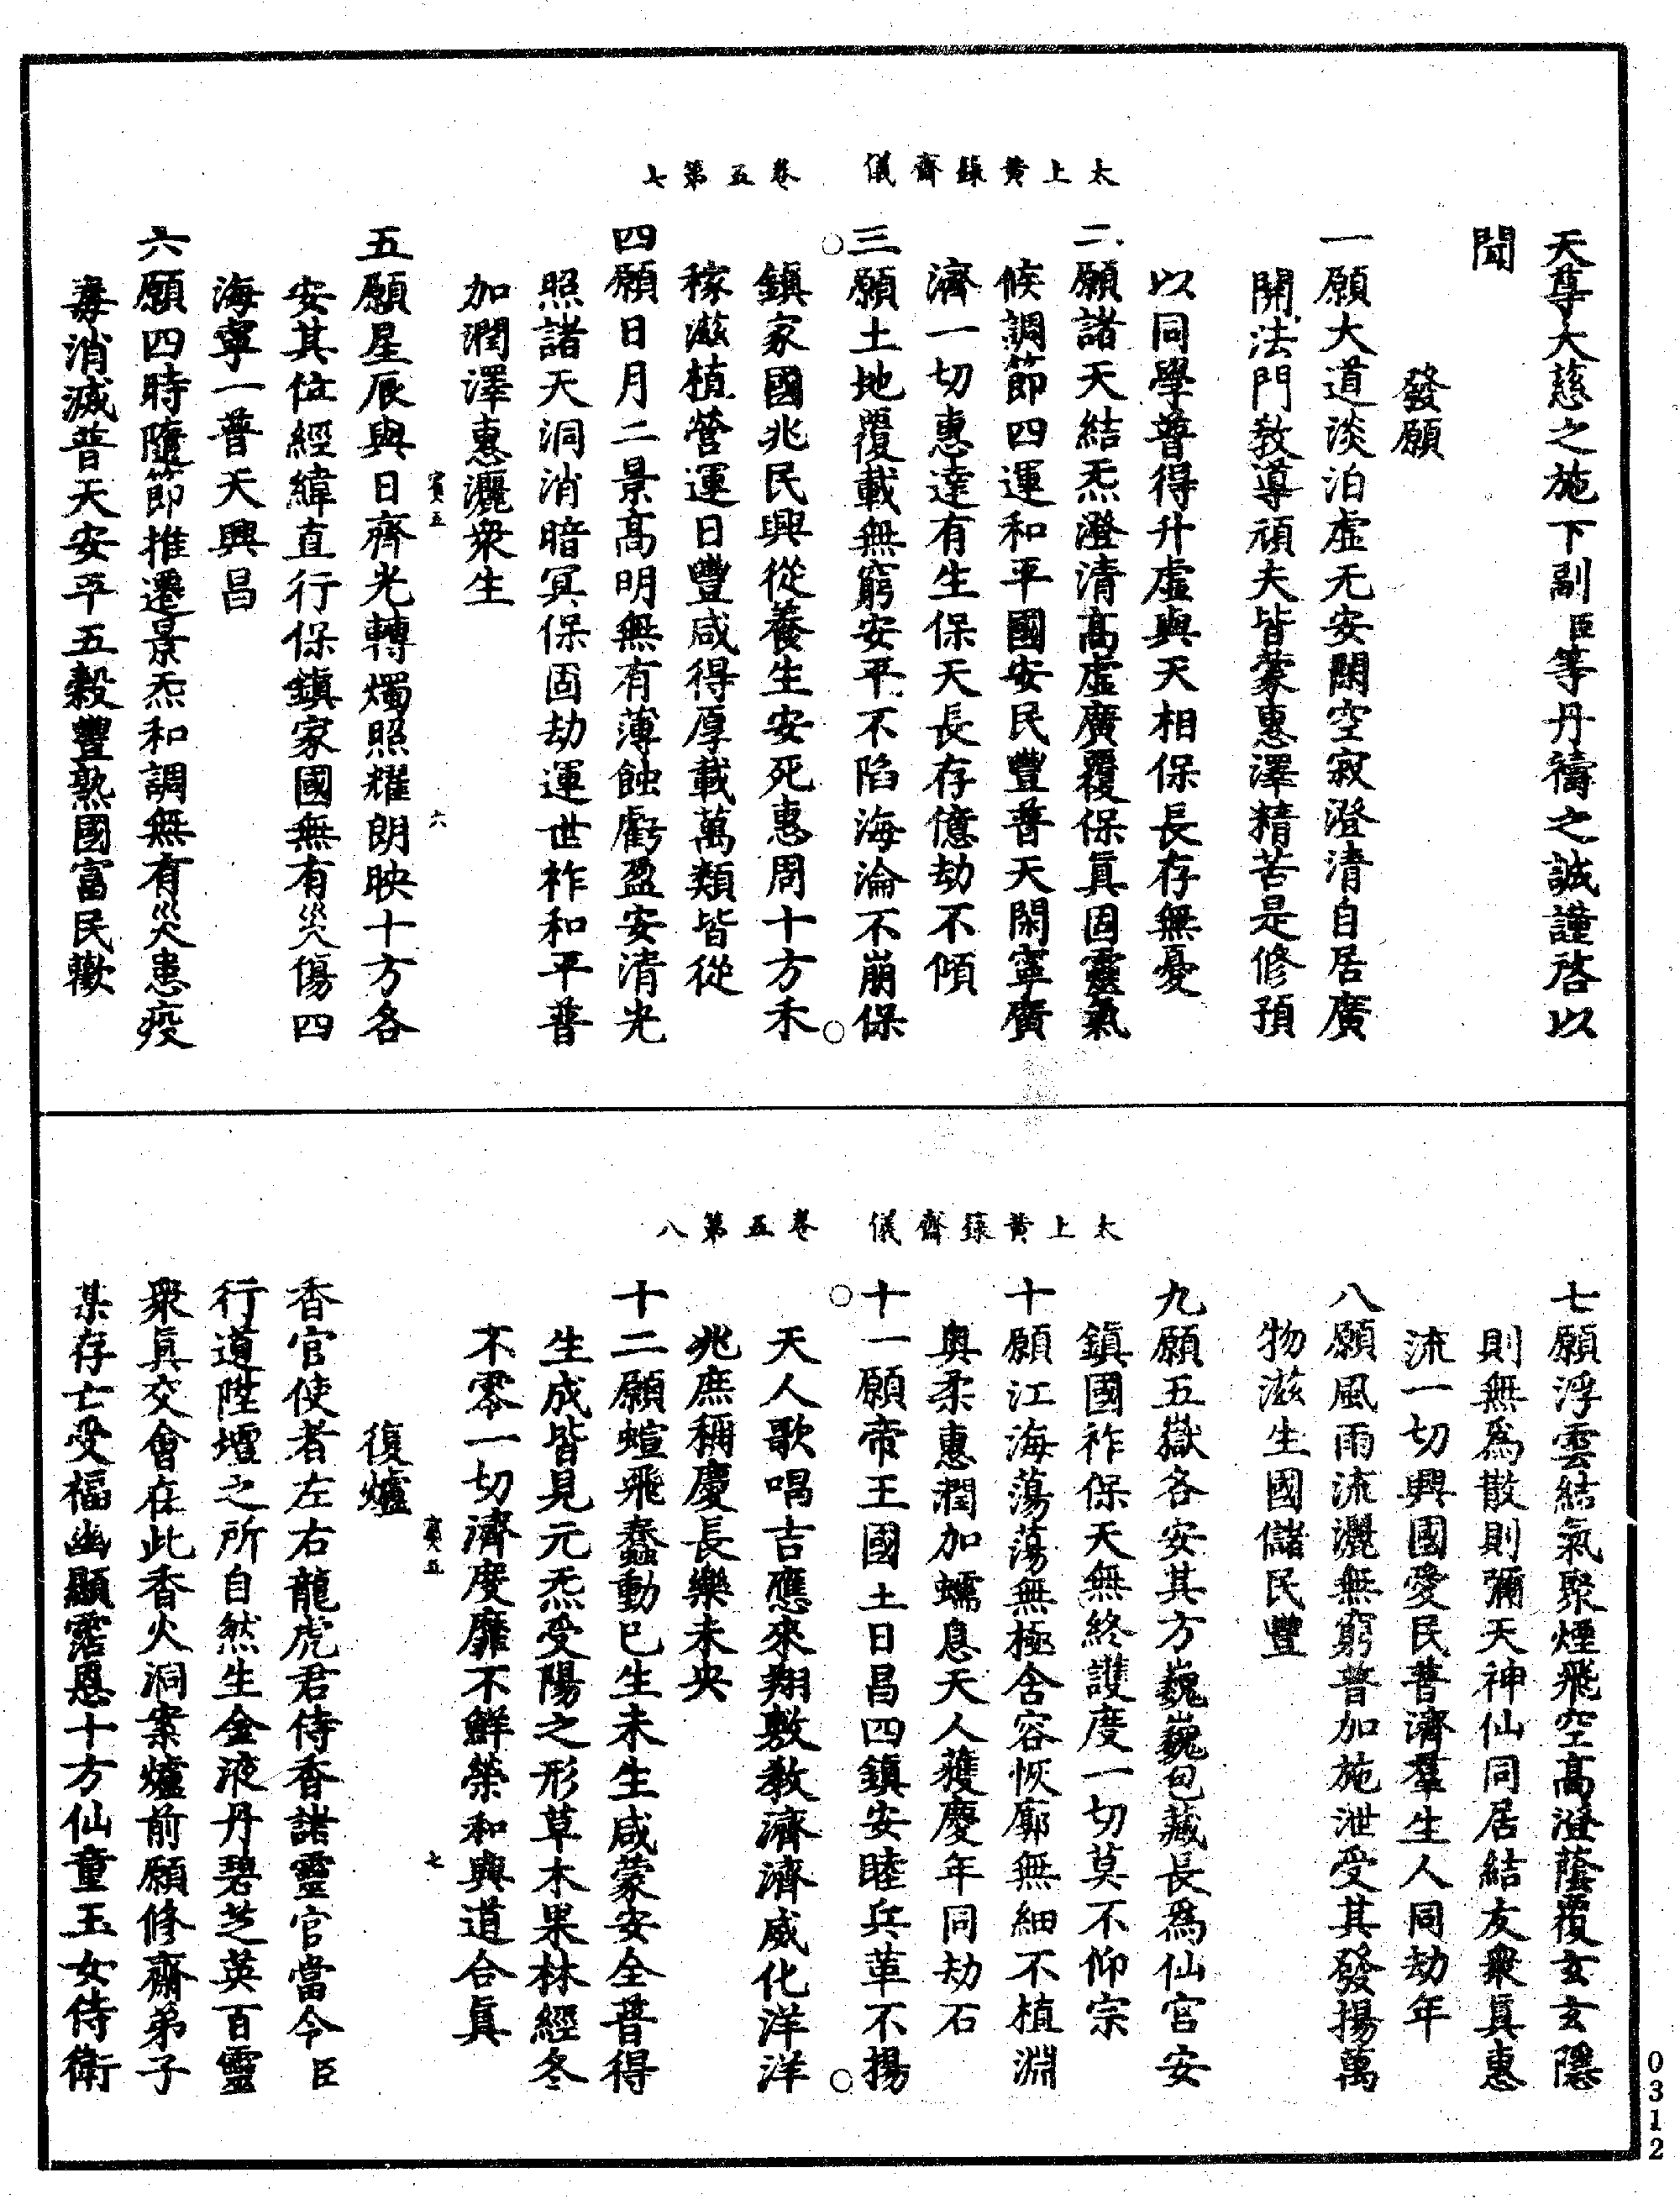 太上黃籙齋儀　卷五第七
天尊大慈之施下副臣等丹禱之誠謹啓以
聞
發願
一願大道淡泊虛无安閑空寂澄清自居廣
開法門教導頑夫皆蒙惠澤精苦是修預
以同學普得升虛與天相保長存無憂
二願諸天結炁澄清高虛廣覆保眞固靈氣
候調節四運和平國安民豐普天閑寧廣
濟一切惠達有生保天長存億劫不傾
三願土地覆載無窮安平不陷海淪不崩保
鎮家國兆民興從養生安死惠周十方禾
稼滋植營運日豐咸得厚載萬類皆從
四願日月二景高明無有薄蝕虧盈安清光
照諸天洞消暗冥保固劫運世祚和平普
加潤澤惠灑衆生
賓五　六
五願星辰與日齊光轉燭照耀朗映十方各
安其位經緯直行保鎮家國無有災傷四
海寧一普天興昌
六願四時隨節推遷景炁和調無有災患疫
毒消滅普天安平五穀豐熟國富民歡
太上黃籙齋儀　卷五第八
七願浮雲結氣聚煙飛空高澄蔭覆玄玄隱
則無爲散則彌天神仙同居結友衆眞惠
流一切興國愛民普濟羣生人同劫年
八願風雨流灑無窮普加施泄受其發揚萬
物滋生國儲民豐
九願五嶽各安其方巍巍包藏長爲仙官安
鎮國祚保天無終護度一切莫不仰宗
十願江海蕩蕩無極含容恢廓無細不植淵
奥柔惠潤加蠕息天人獲慶年同劫石
十一願帝王國土日昌四鎮安睦兵革不揚
天人歌唱吉應來翔敷教濟濟威化洋洋
兆庶稱慶長樂未央
十二願蝖飛蠢動已生未生咸蒙安全普得
生成皆見元炁受陽之形草木果林經冬
不零一切濟度靡不鮮榮和與道合眞
賓五　七
復爐
香官使者左右龍虎君侍香諸靈官當令臣
行道陞壇之所自然生金液丹碧芝英百靈
衆眞交會在此香火洞案爐前願修齋弟子
某存亡受福幽顯霑恩十方仙童玉女侍衛
0312